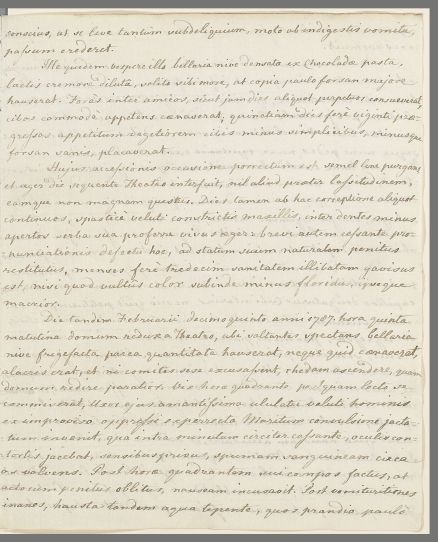 conscius, at se leve tantum subdeliquium, moto ab indigestis vomitu,
passum crederet.
Ille quidem vespere illo bellaria nive densata ex Chocoladæ pasta,
lactis cremore diluta, solito sibi more, at copia paulo forsan majore
hauserat. Foras inter amicos, sicut jam dies aliquot perpetuos consueverat,
cibos commode appetens cænaserat, quinetiam dies fere viginti præ-
gressos appetitum vegetiorem cibis minus simplicibus, minusque
forsan sanis, placaverat.
Hujus accessionis occasione porrectum est semel lene purgans,
et æger die sequente Theatro interfuit, nil aliud præter lassitudinem,
eamque non magnam questus. Dies tamen ab hac correptione aliquot
continuos, spastice veluti constrictis maxillis, inter dentes minus
apertos verba sua proferre visus æger: brevi autem cessante pro-
nuntiationis defectu hoc, ad statum suum naturalem penitus
restitutus, menses fere tredecim sanitatem illibatam gavisus
est, nisi quod vultus color subinde minus floridus, ipseque
macrior.
Die tandem Februarii decimo quinto anni 1787. hora quinta
matutina domum redux a Theatro, ubi saltantes spectans bellaria
nive frigefacta parca quantitate hauserat, neque quid cænaserat,
alacris erat, et ni comites sese excusassent, rhedam ascendere, quam
domum redire paratior. Vix horæ quadrante postquam lecto se
commiserat, Uxor ejus amantissima ululatu veluti hominis
ex improviso oppressi experrecta Maritum convulsione jacta-
tum invenit, qua intra minutum circiter cessante, oculis con-
tortis jacebat, sensibus privus, spumam sanguineam circa
os volvens. Post horæ quadrantem sui compos factus, at
actorum penitus oblitus, nauseam incusavit. Post vomituritiones
inanes, hausta tandem aqua tepente, quos prandio paulo